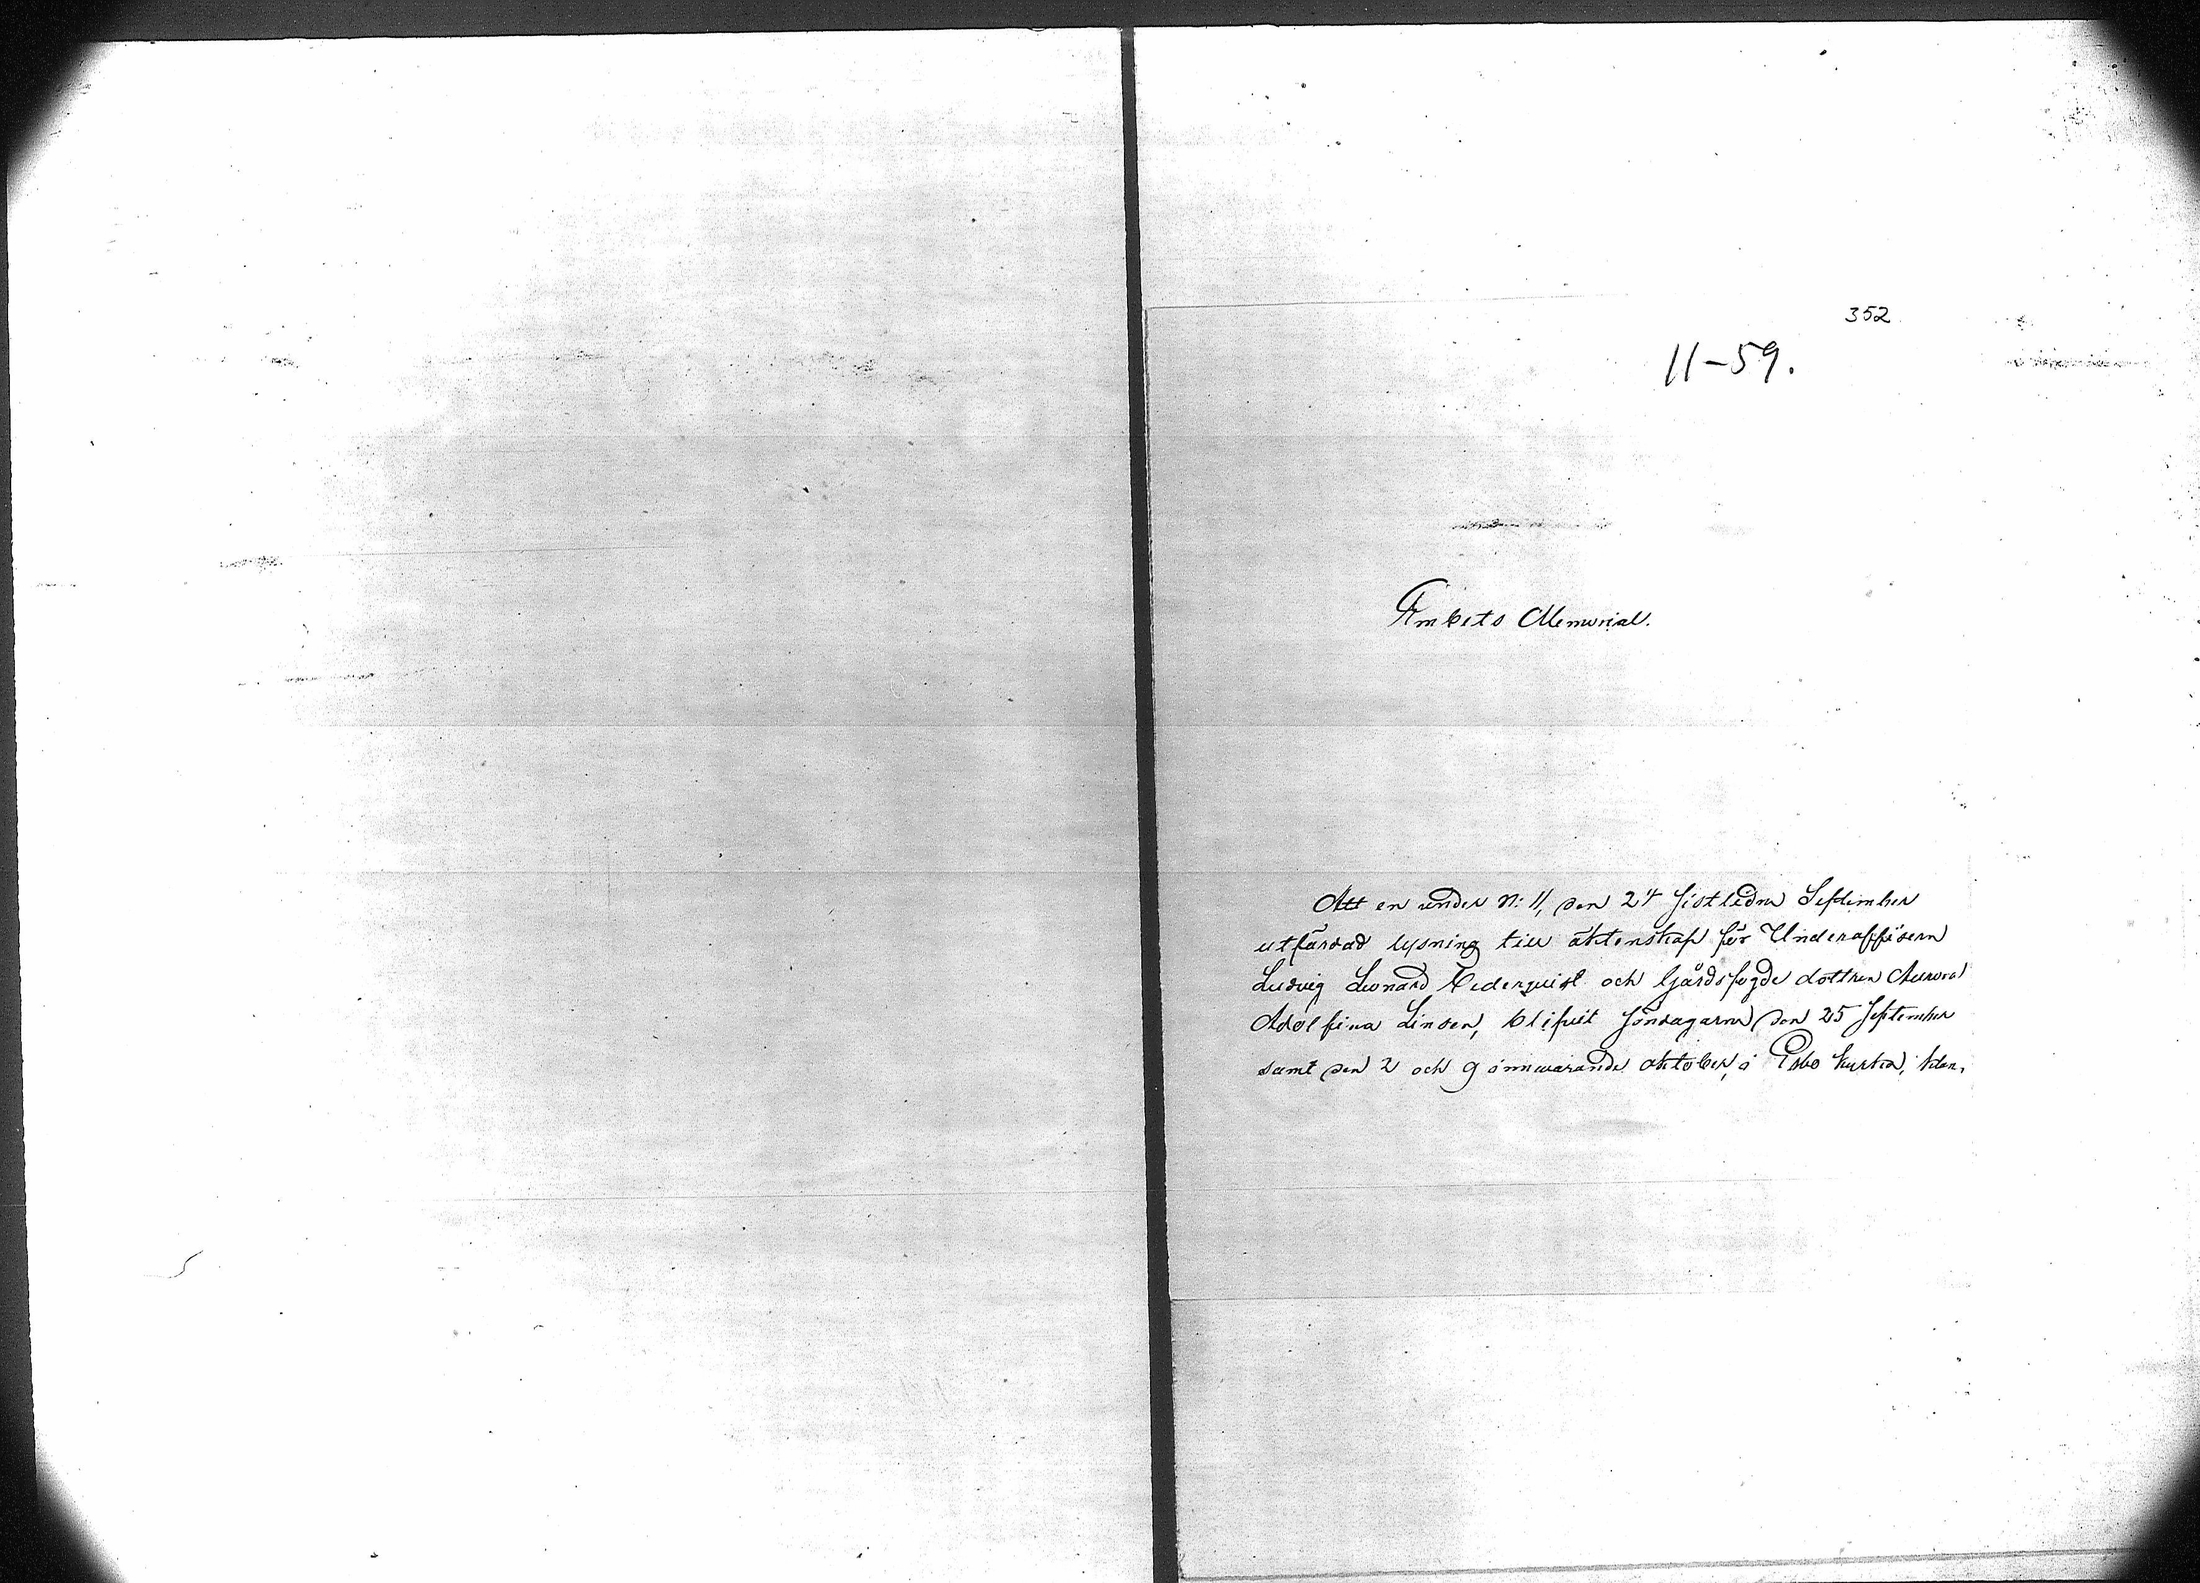 352
11-59.
Embets Memorial.
Att en under N: 11, den 24 sistledne September
utfärdad lysning till äktenskap för Underofficern
Ludvig Leonard Cederqvist och Gårdsfogde dottren Aurora
Adolfina Linden, blifvit söndagarne den 25 September
samt den 2 och 9 innevarande oktober, i Esbo kyrka,